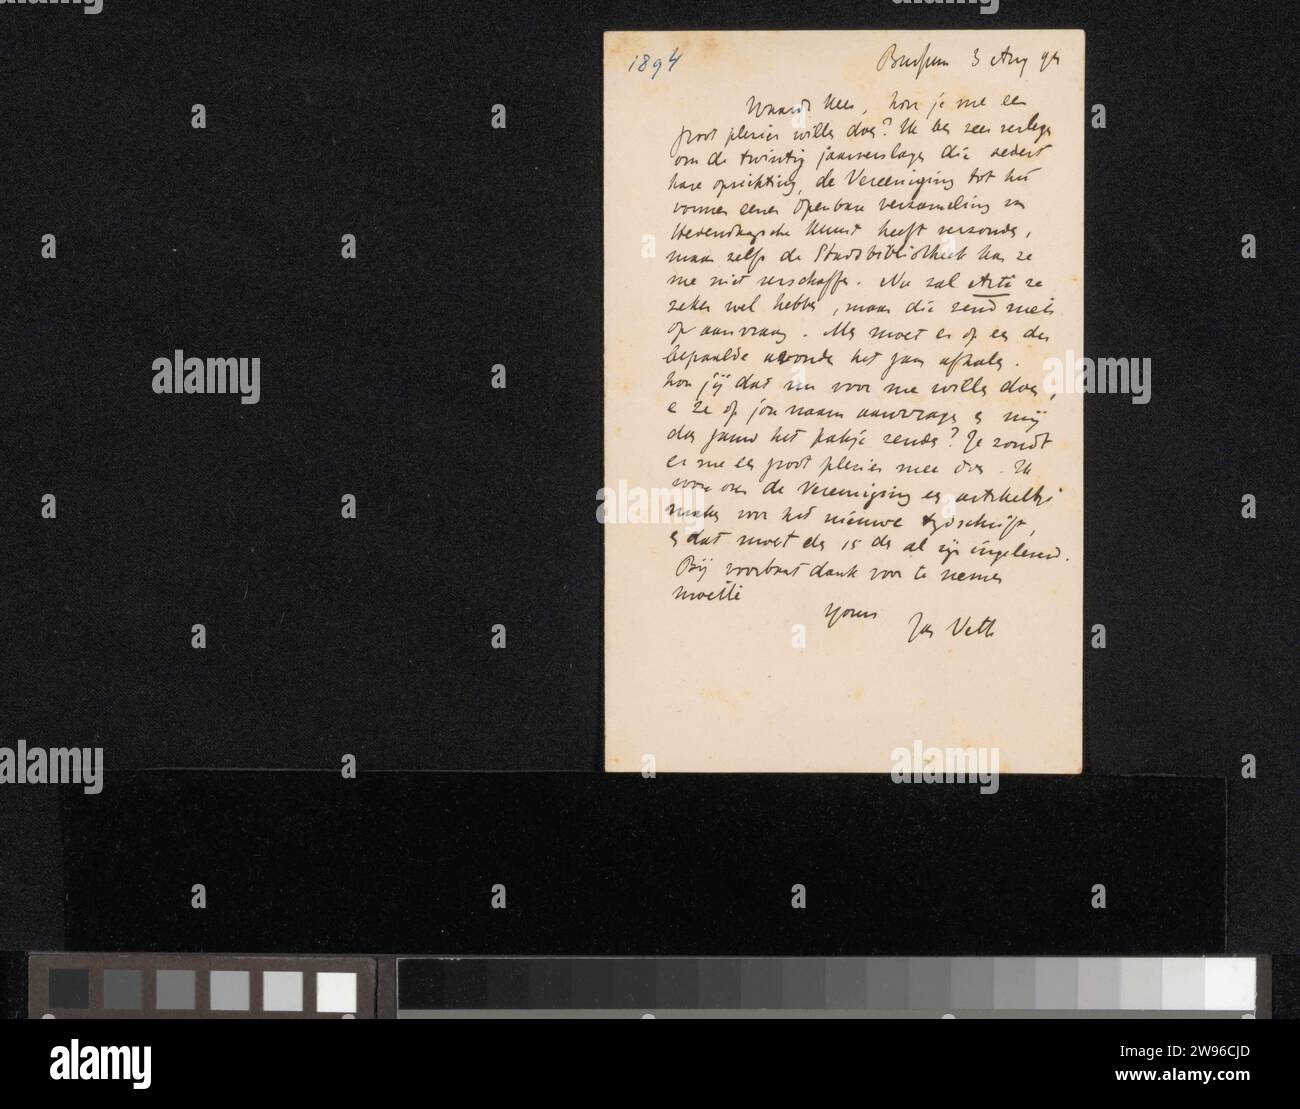 1894
Bussum 3 Aug 94
Waarde Kees, kon je me een
groot plezier willen doen? Ik ben zeer verlegen
om de twintig jaarverslagen die sedert
hare oprichting, de Vereeniging tot het
vormen eener openbare verzameling van
Hedendaagsche Kunst heeft verzonden,
maar zelfs de Stadsbibliotheek kan ze
me niet verschaffen. Nu zal Arti ze
zeker wel hebben, maar die zend niets
op aanvraag. Men moet er op een der
bepaalde avonden het gaan afhalen.
kon jij dat nu voor me willen doen,
en ze op jou naam aanvragen en mij
dan gauw het pakje zenden? Je zoudt
er me een groot plezier mee doen. Ik
wou over de Vereeniging een artikeltje
maken voor het nieuwe tydschrift,
en dat moet den 15 den al zijn ingeleverd.
Bij voorbaat dank voor te nemen
moeite
Yours
Jan Veth
alamy
Image ID: 2W96CJD
www.alamy.com